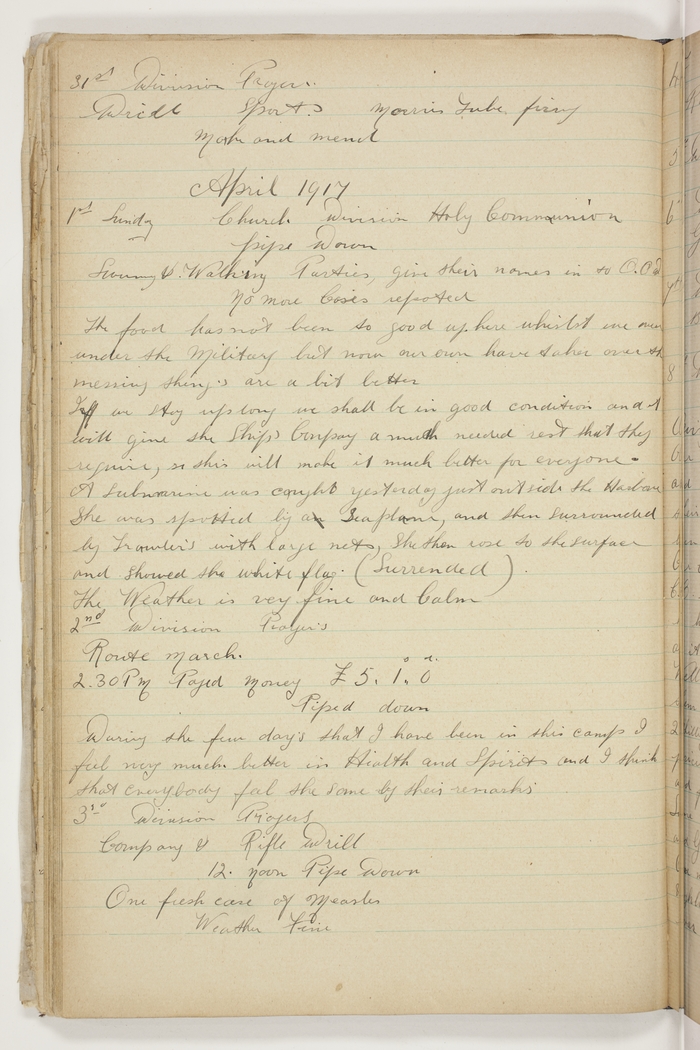 31st Division Prayers.
Drill Sports Morris Tube firing
Make and mend
April 1917
1st Sunday Church Division Holy Communion
pipe Down
Swimming & Walking Parties, give their names in to O.O.D
No more Cases reported
The food has not been so good up here whilst we were
under the Military but now our own have taken over the
messing thing's are a bit better
If we stay up long we shall be in good condition and it
will give the Ship's Company a much needed rest that they
require, so this will make it much better for everyone.
A Submarine was caught yesterday just outside the Harbour
She was spotted by a Seaplane, and then surrounded
by Trawler's with large nets, She then rose to the surface
and showed the white flag. (Surrended).
The Weather is very fine and Calm
2nd Division Prayer's
Route march.
2.30 Pm Payed money £5. 1.s 0d.
Piped down
During the few day's that I have been in this camp I
feel very much better in Hialth and Spirits and I think
that everybody feel the same by their remarks
3rd Division Prayers
Company & Rifle Drill
12. noon Pipe Down
One fresh case of Measles
Weather Fine